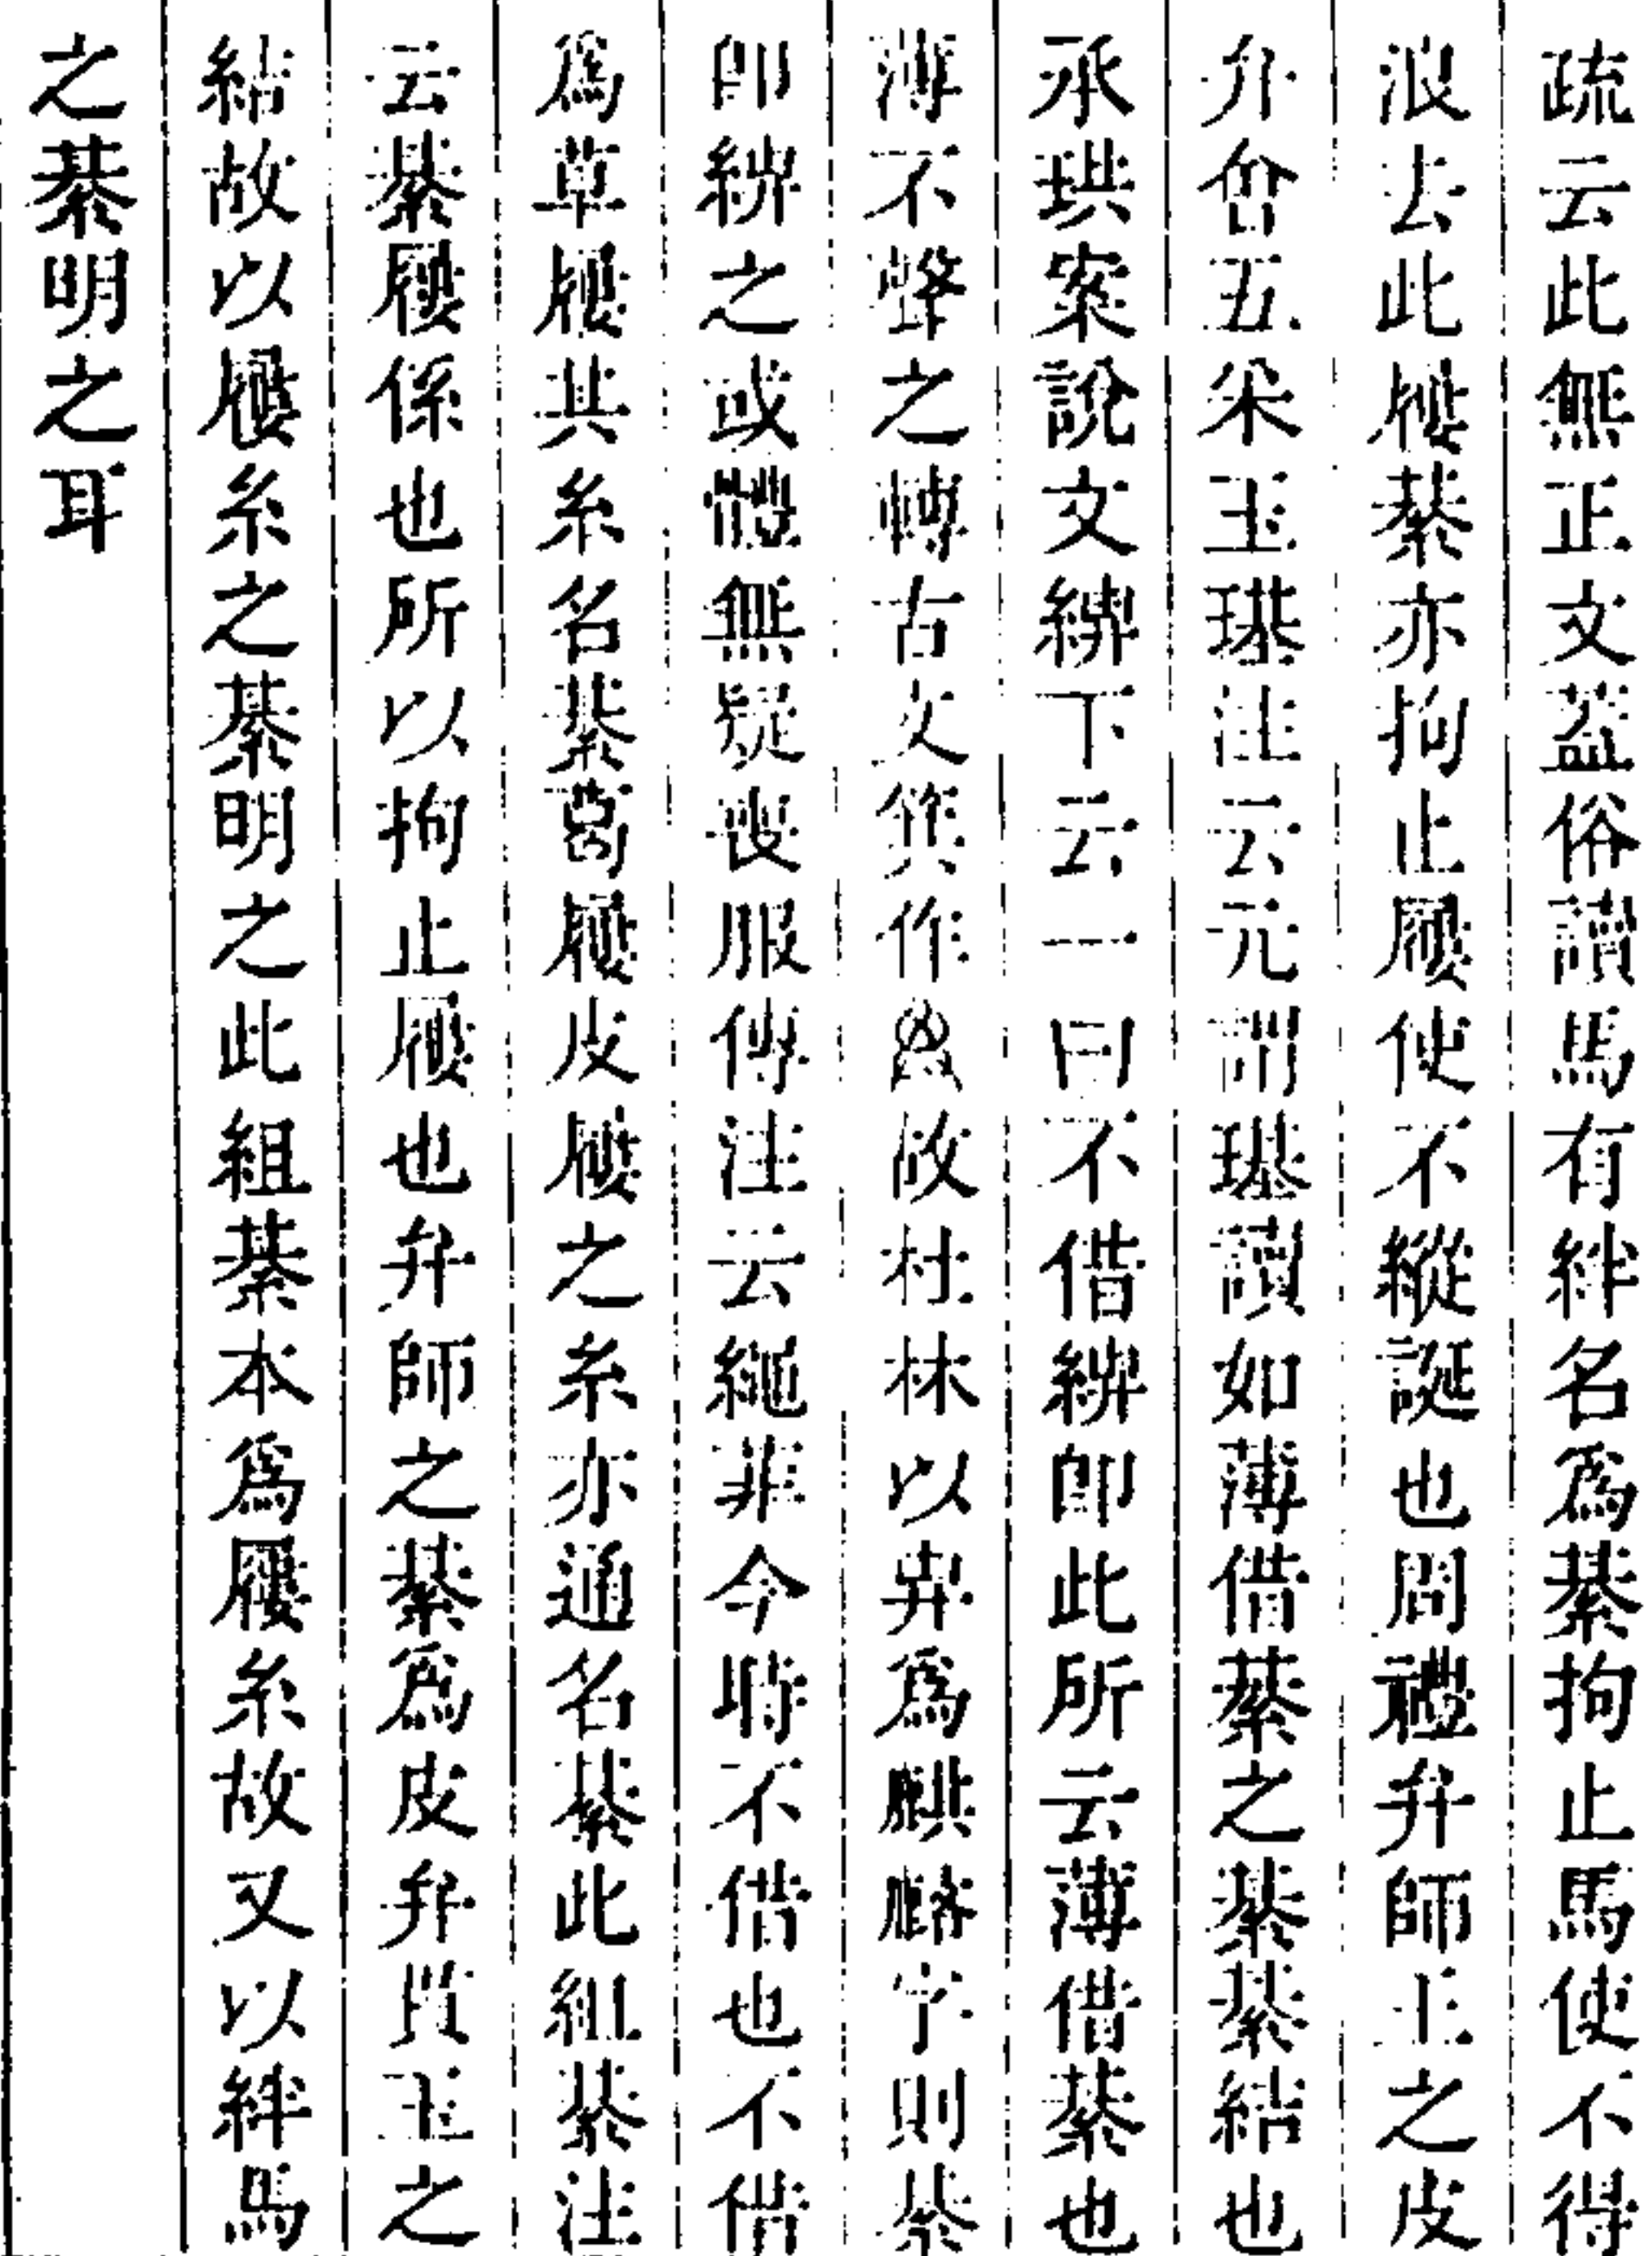 疏云此無正文葢俗讀馬有絆名爲綦拘止馬使不得
浪去此屨綦亦拘止屨使不縱誕也周禮弁師王之皮
弁會五采玉璂注云元謂璂讀如薄借綦之綦綦結也
承珙案說文綥下云一曰不借綥卽此所云薄借綦也
薄不聲之轉古文箕作𠔛故杜林以𢍁爲麒麟字則綦
卽綥之或體無疑喪服傳注云繩菲今時不借也不借
爲草屨其糸名綦葛屨皮屨之糸亦通名綦此組綦注
云綦屨係也所以拘止屨也弁師之綦爲皮弁貫玉之
結故以屨糸之綦明之此組綦本爲屨糸故又以絆馬
之綦明之耳